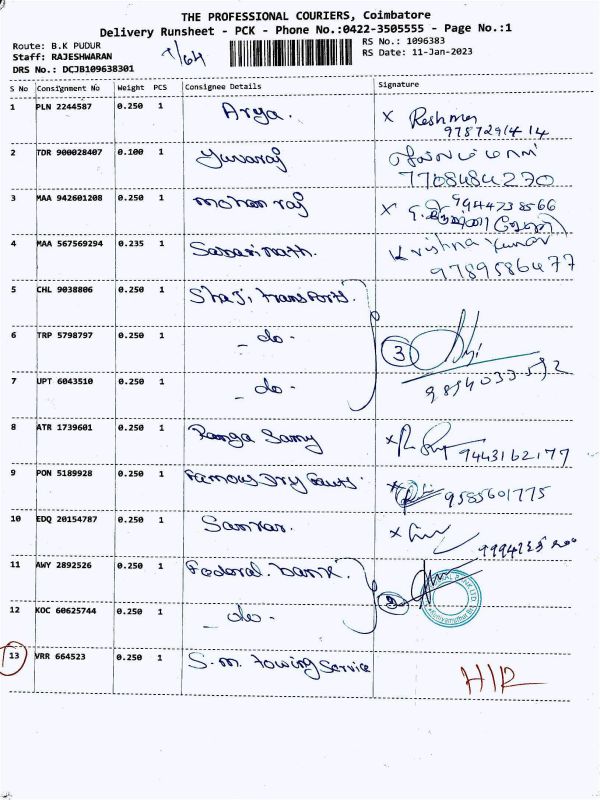 THE PROFESSIONAL COURIERS, Coimbatore
Delivery Runsheet - PCK - Phone No.:0422-3505555 - Page No.:1
Route: B.K PUDUR RS No.: 1096383
Staff: RAJESHWARAN RS Date: 11-Jan-2023
DRS No.: DCJB109638301
S No Consignment No Weight PCS Consignee Details Signature
1 PLN 2244587 0.250 1 Arya. x Reshma
9787291414
2 TDR 900028407 0.100 1 Yuvaraj
7708484270
3 MAA 942601208 0.250 1 mohan raj x 9444738566
4 MAA 567569294 0.235 1 Sabarinath. Krishna Kumar
9789586477
5 CHL 9038806 0.250 1 Shaji transports.
6 TRP 5798797 0.250 1 - do - 3
7 UPT 6043510 0.250 1 - do - 9894033592
8 ATR 1739601 0.250 1 Ranga Samy x 9443162177
9 PON 5189928 0.250 1 Famous Dry Fruits. x 9585601775
10 EDQ 20154787 0.250 1 Sankar. x
11 AWY 2892526 0.250 1 Federal. bank.
12 KOC 60625744 0.250 1 - do -
13 VRR 664523 0.250 1 S.M. towing Service HIR